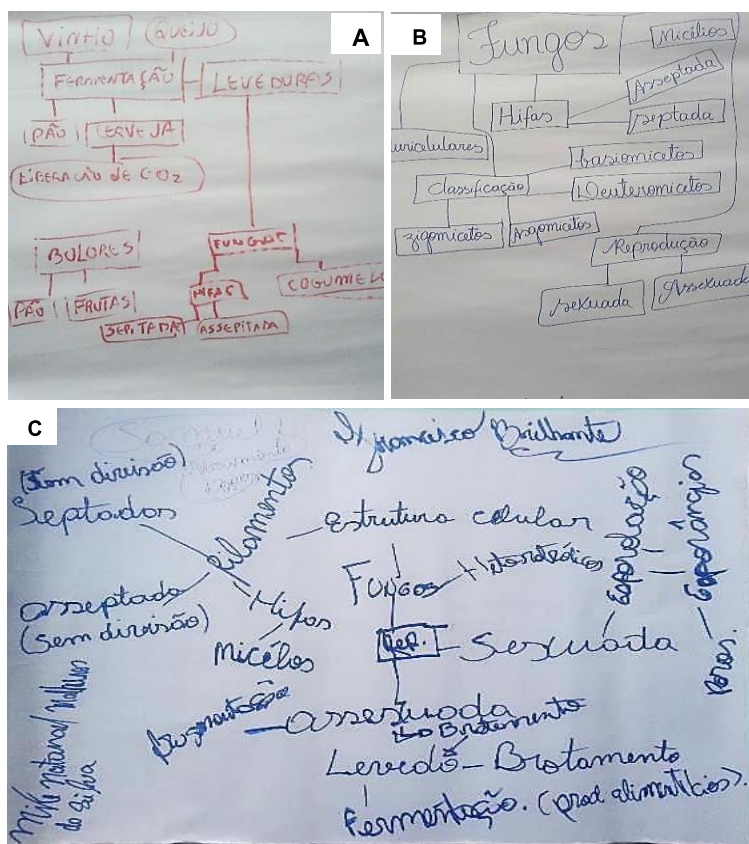 A
VINHO QUEIJO
FERMENTAÇÃO LEVEDURAS
PÃO CERVEJA
LIBERAÇÃO DE CO2
BOLORES
FUNGOS
PÃO FRUTAS
HIFAS
COGUMEL
SEPITADA ASSEPITADA
B
Fungos
Micélios
Hifas
Asseptada
septada
unicelulares
Classificação
basiomicetos
Deuteromicetos
zigomicetos
Asgomicetos
Reprodução
sexuada
Assexuada
C
Francisco Brilhante
(Com divisão)
Septados
filamentos
Estrutura celular
Fungos
Heterotróficos
Esporulação
Esporângios
asseptado
(sem divisão)
Hifas
Micélos
Rep.
Sexuada
fragmentação
assexuada
Brotamento
Levedo - Brotamento
Fermentação. (prod alimentícios).
da Silva